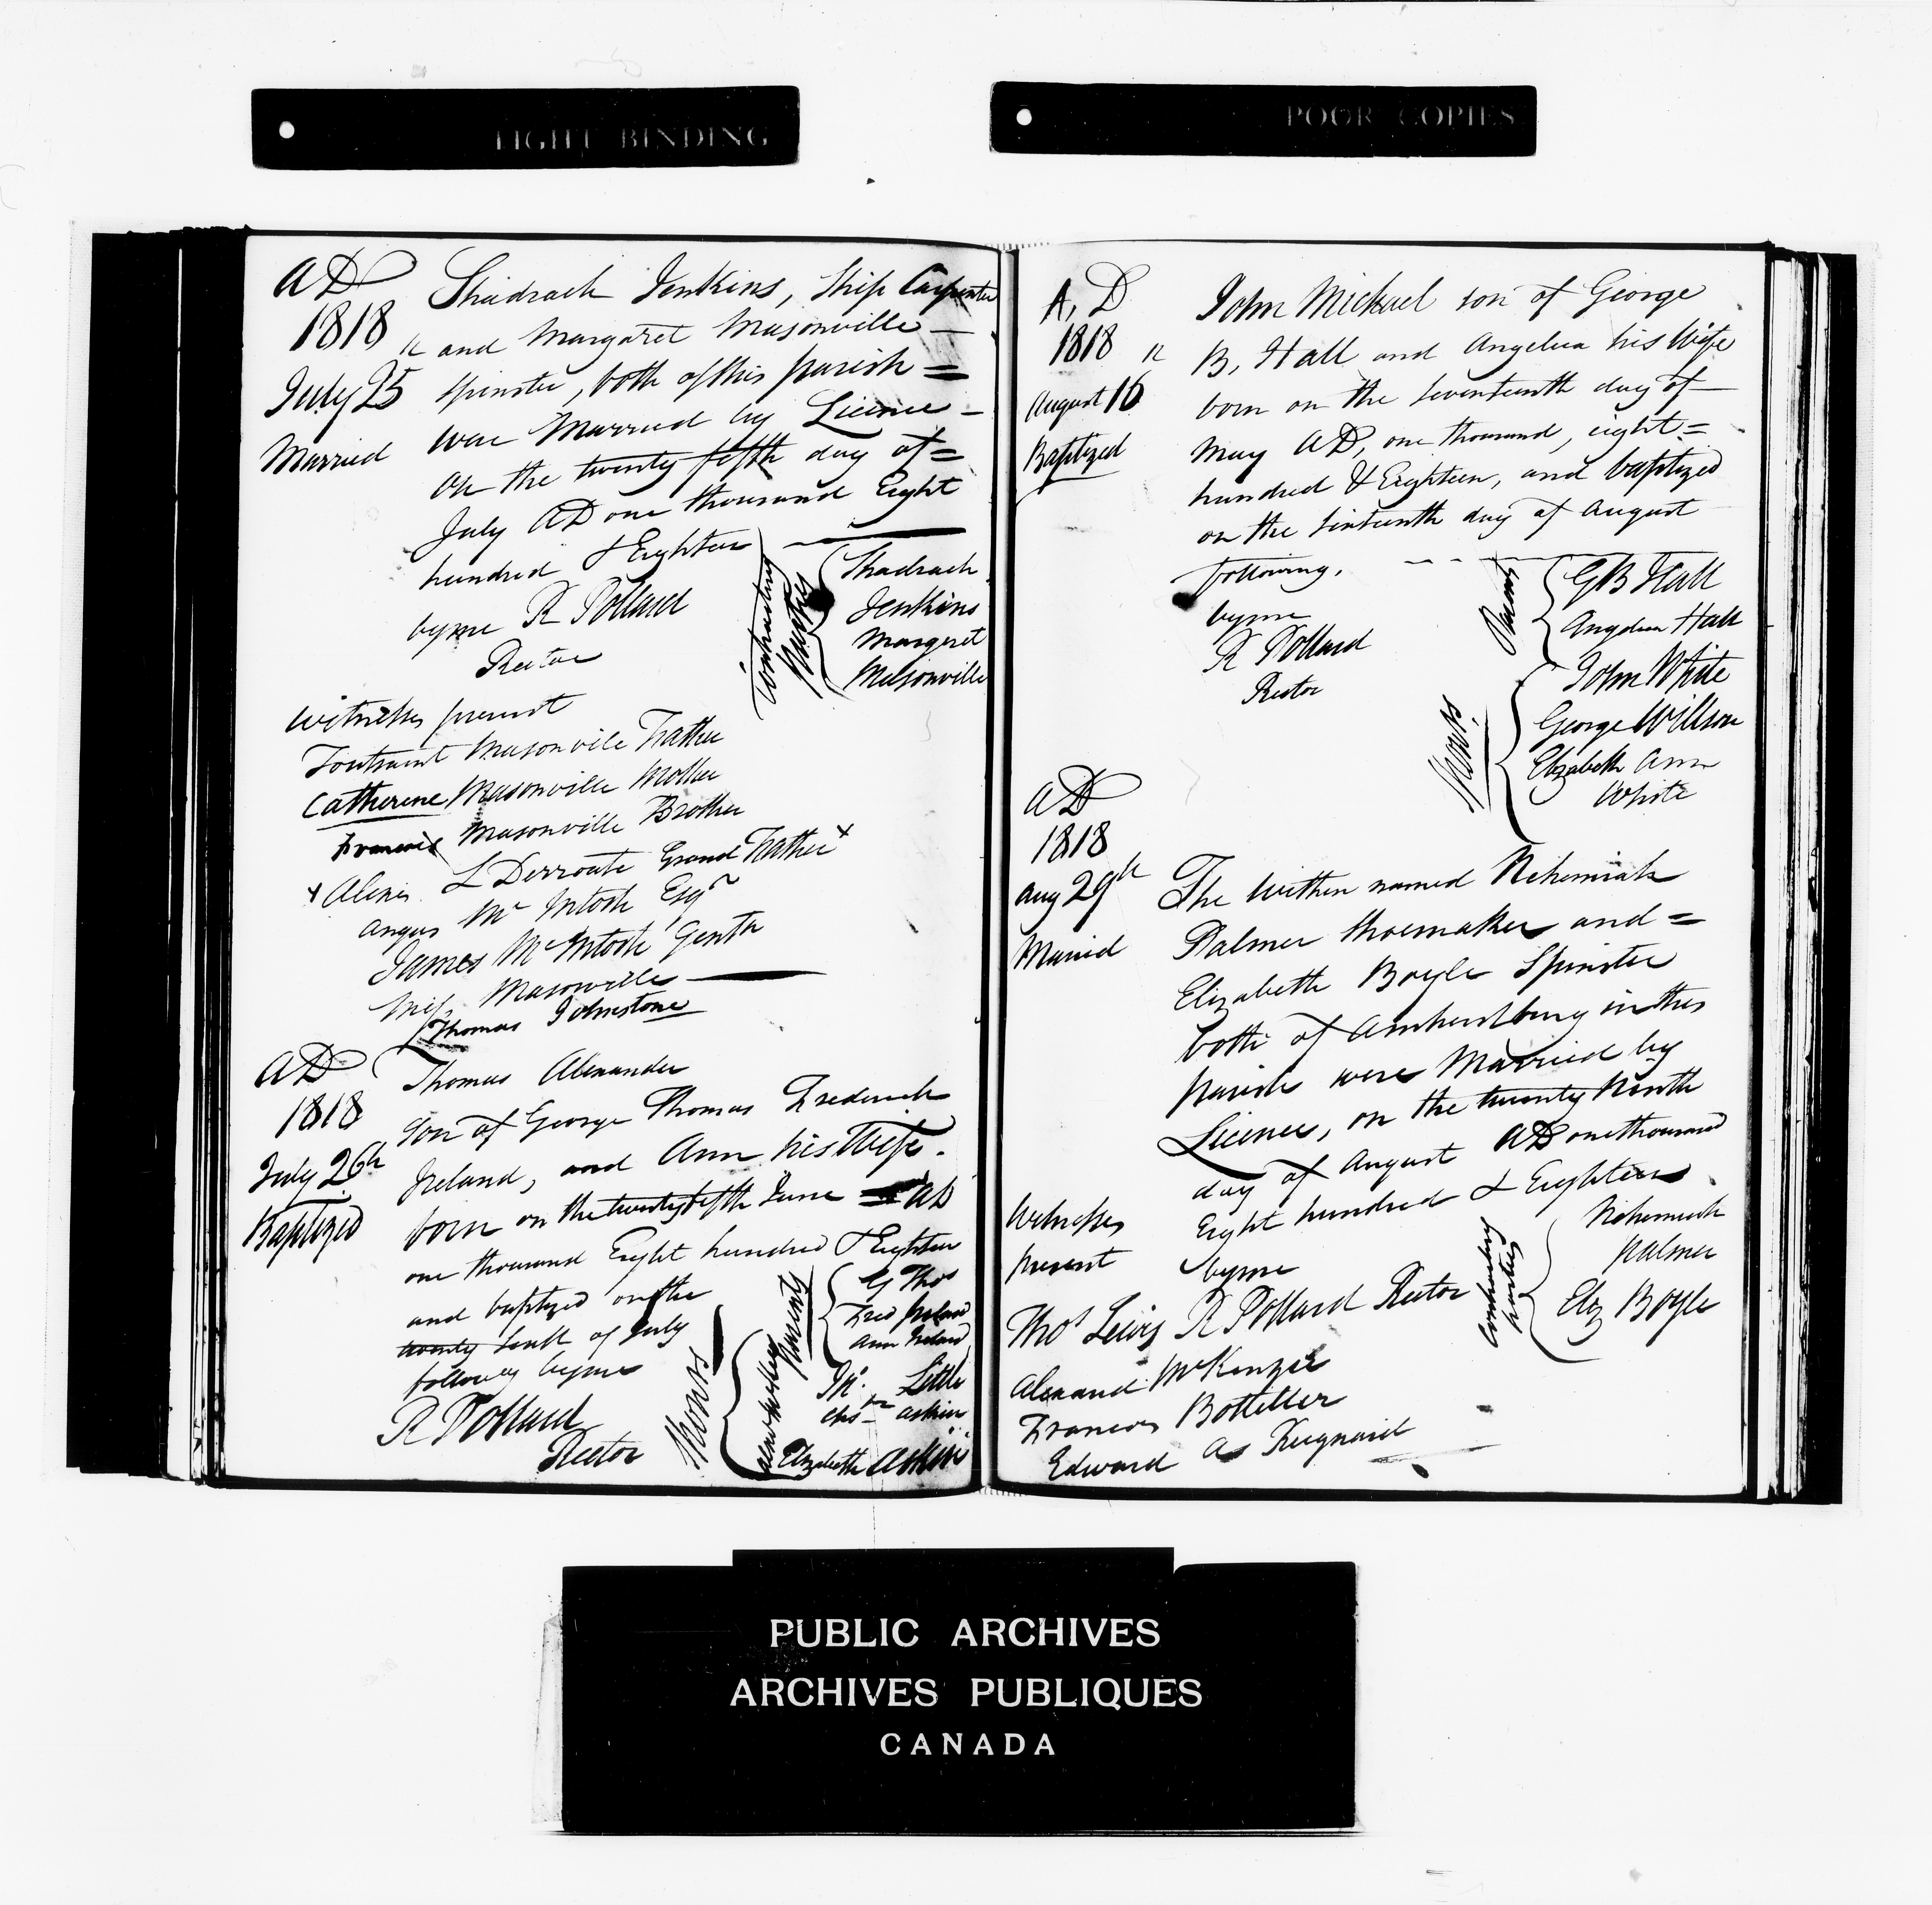 TIGHT BINDING
POOR COPIES
AD
1818
July 25
Married
Shadrach Jenkins, Ship Carpenter
and Margaret Masonville
Spinster, both of this parish =
were Married by Licence -
on the twenty fifth day of =
July AD one thousand Eight
hundred & Eighteen
by me R Pollard
Rector
Contracting
Parties
Shadrach
Jenkins
Margaret
Masonville
Witnesses present
Toutsaint Masonvile Father
Catherine Masonville Mother
Francois Masonville Brother
x Alexis L Derroute Grand Father x
Angus Mc Intosh Esqr
James McIntosh Gentn
Miss Masonville
Thomas Johnstone
AD
1818
July 26th
Baptized
Thomas Alexander
Son of George Thomas Frederick
Ireland, and Ann his Wife.
born on the twenty fifth June = AD
one thousand Eight hundred & Eighteen
and baptized on the
twenty sixth of July
following by me
R Pollard
Rector
Parents
G Thos
Fred Ireland
Ann Ireland
Sponsors
Little
Askin
Elizabeth Askin
A, D
1818
August 16
Baptized
John Michael son of George
B, Hall and Angelica his Wife
born on the seventeenth day of
May AD, one thousand, eight =
hundred & Eighteen, and baptized
on the sixteenth day of August
following.
by me
R Pollard
Rector
Parents
GB Hall
Angelica Hall
Sponsors
John White
George Willson
Elizabeth Ann
White
AD
1818
Aug 29th
Married
The within named Nehemiah
Palmer Shoemaker and =
Elizabeth Boyle Spinster
both of Amherstburg in this
parish were Married by
Licence, on the twenty Nineth
day of August AD one thousand
Eight hundred & Eighteen
by me
R Pollard Rector
Contracting
parties
Nehemiah
Palmer
Eliz Boyle
Witnesses
present
Thos Lewis
Alexand McKenzie
Francois Bottellier
Edward As Reignard
PUBLIC ARCHIVES
ARCHIVES PUBLIQUES
CANADA